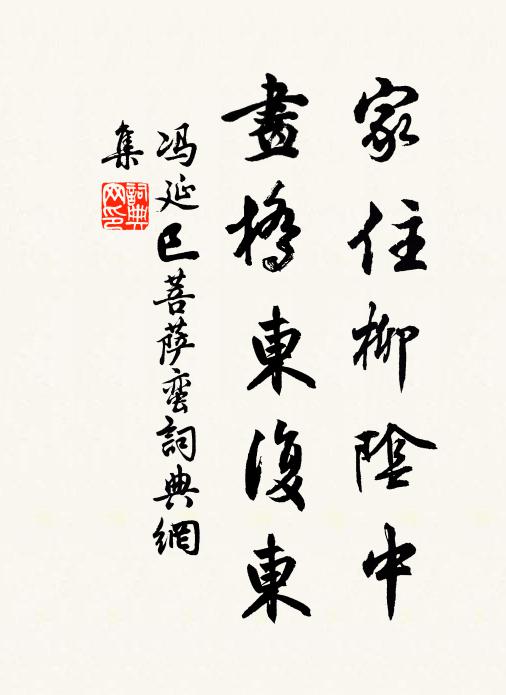 家住柳陰中
畫橋東復東
冯延巳菩萨蛮詞典網
集
詞典
网印